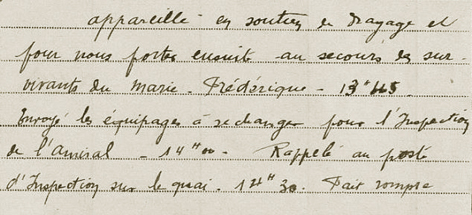 appareillé en soutien de dragage et
pour nous porter ensuite au secours des sur-
vivants du Marie-Frédérique - 13H45
Envoyé les équipages à se changer pour l'Inspection
de l'Amiral - 14H00 - Rappelé au poste
d'Inspection sur le quai. 14H30. Fait rompre